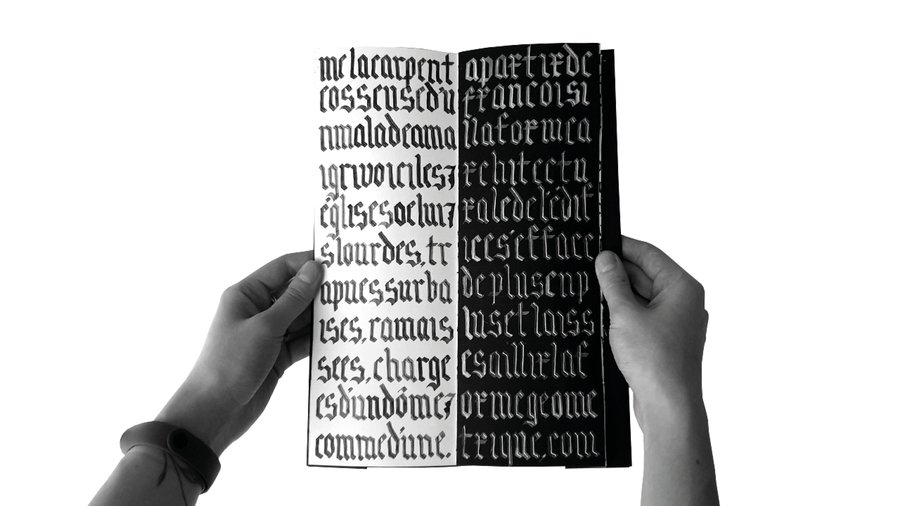 melacarpent
eosseusedu
nmaladeama
igrivoiciles
églisesdelui
slourdes,tr
apuessurba
ises,ramais
sees,charge
esd'undôme
commed'une.
apartirde
françoisi
ilaformea
rchitectu
raledel'édif
ices'efface
deplusenp
lusetlaiss
esaillirlaf
ormegeome
trique,com